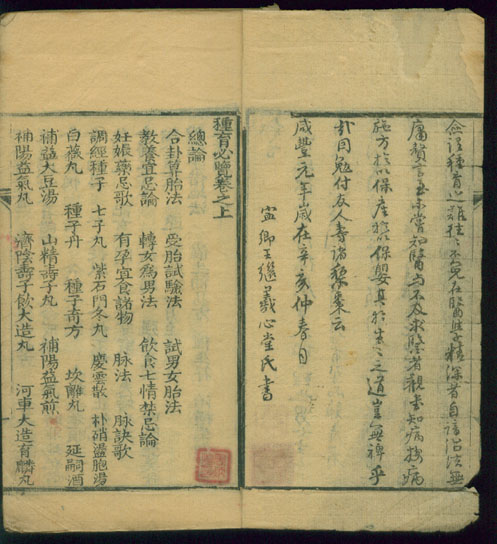 僉謂種育之難往往不免在醫學精深者自諳治法無
庸贅言至未嘗知醫与不及求醫者觀書知病按病
施方於以保產於以保嬰其於生生之道豈無裨乎
哉因勉付友人壽諸梨棗云
咸豐元年歲在辛亥仲春月
卿王繼羲心堂氏書
種育必覽卷之上
總論
合卦算胎法 受胎試驗法 試男女胎法
教養宜忌論 轉女為男法 飲食七情禁忌論
妊娠藥忌歌 有孕宜食諸物 脉法 脉訣歌
調經種子 七子丸 紫石門冬丸 慶雲散 朴硝盪胞湯
白薇丸 種子丹 種子奇方 坎離丸 延嗣酒
補益大豆湯 山精壽子丸 補陽益氣煎
補陽益氣丸 濟陰壽子飲大造丸 河車大造育麟丸